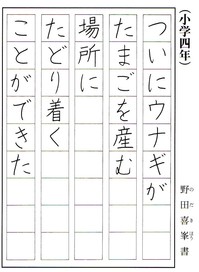 （小学四年）
ついにウナギが
たまごを産む
場所に
たどり着く
ことができた
野田喜峯書